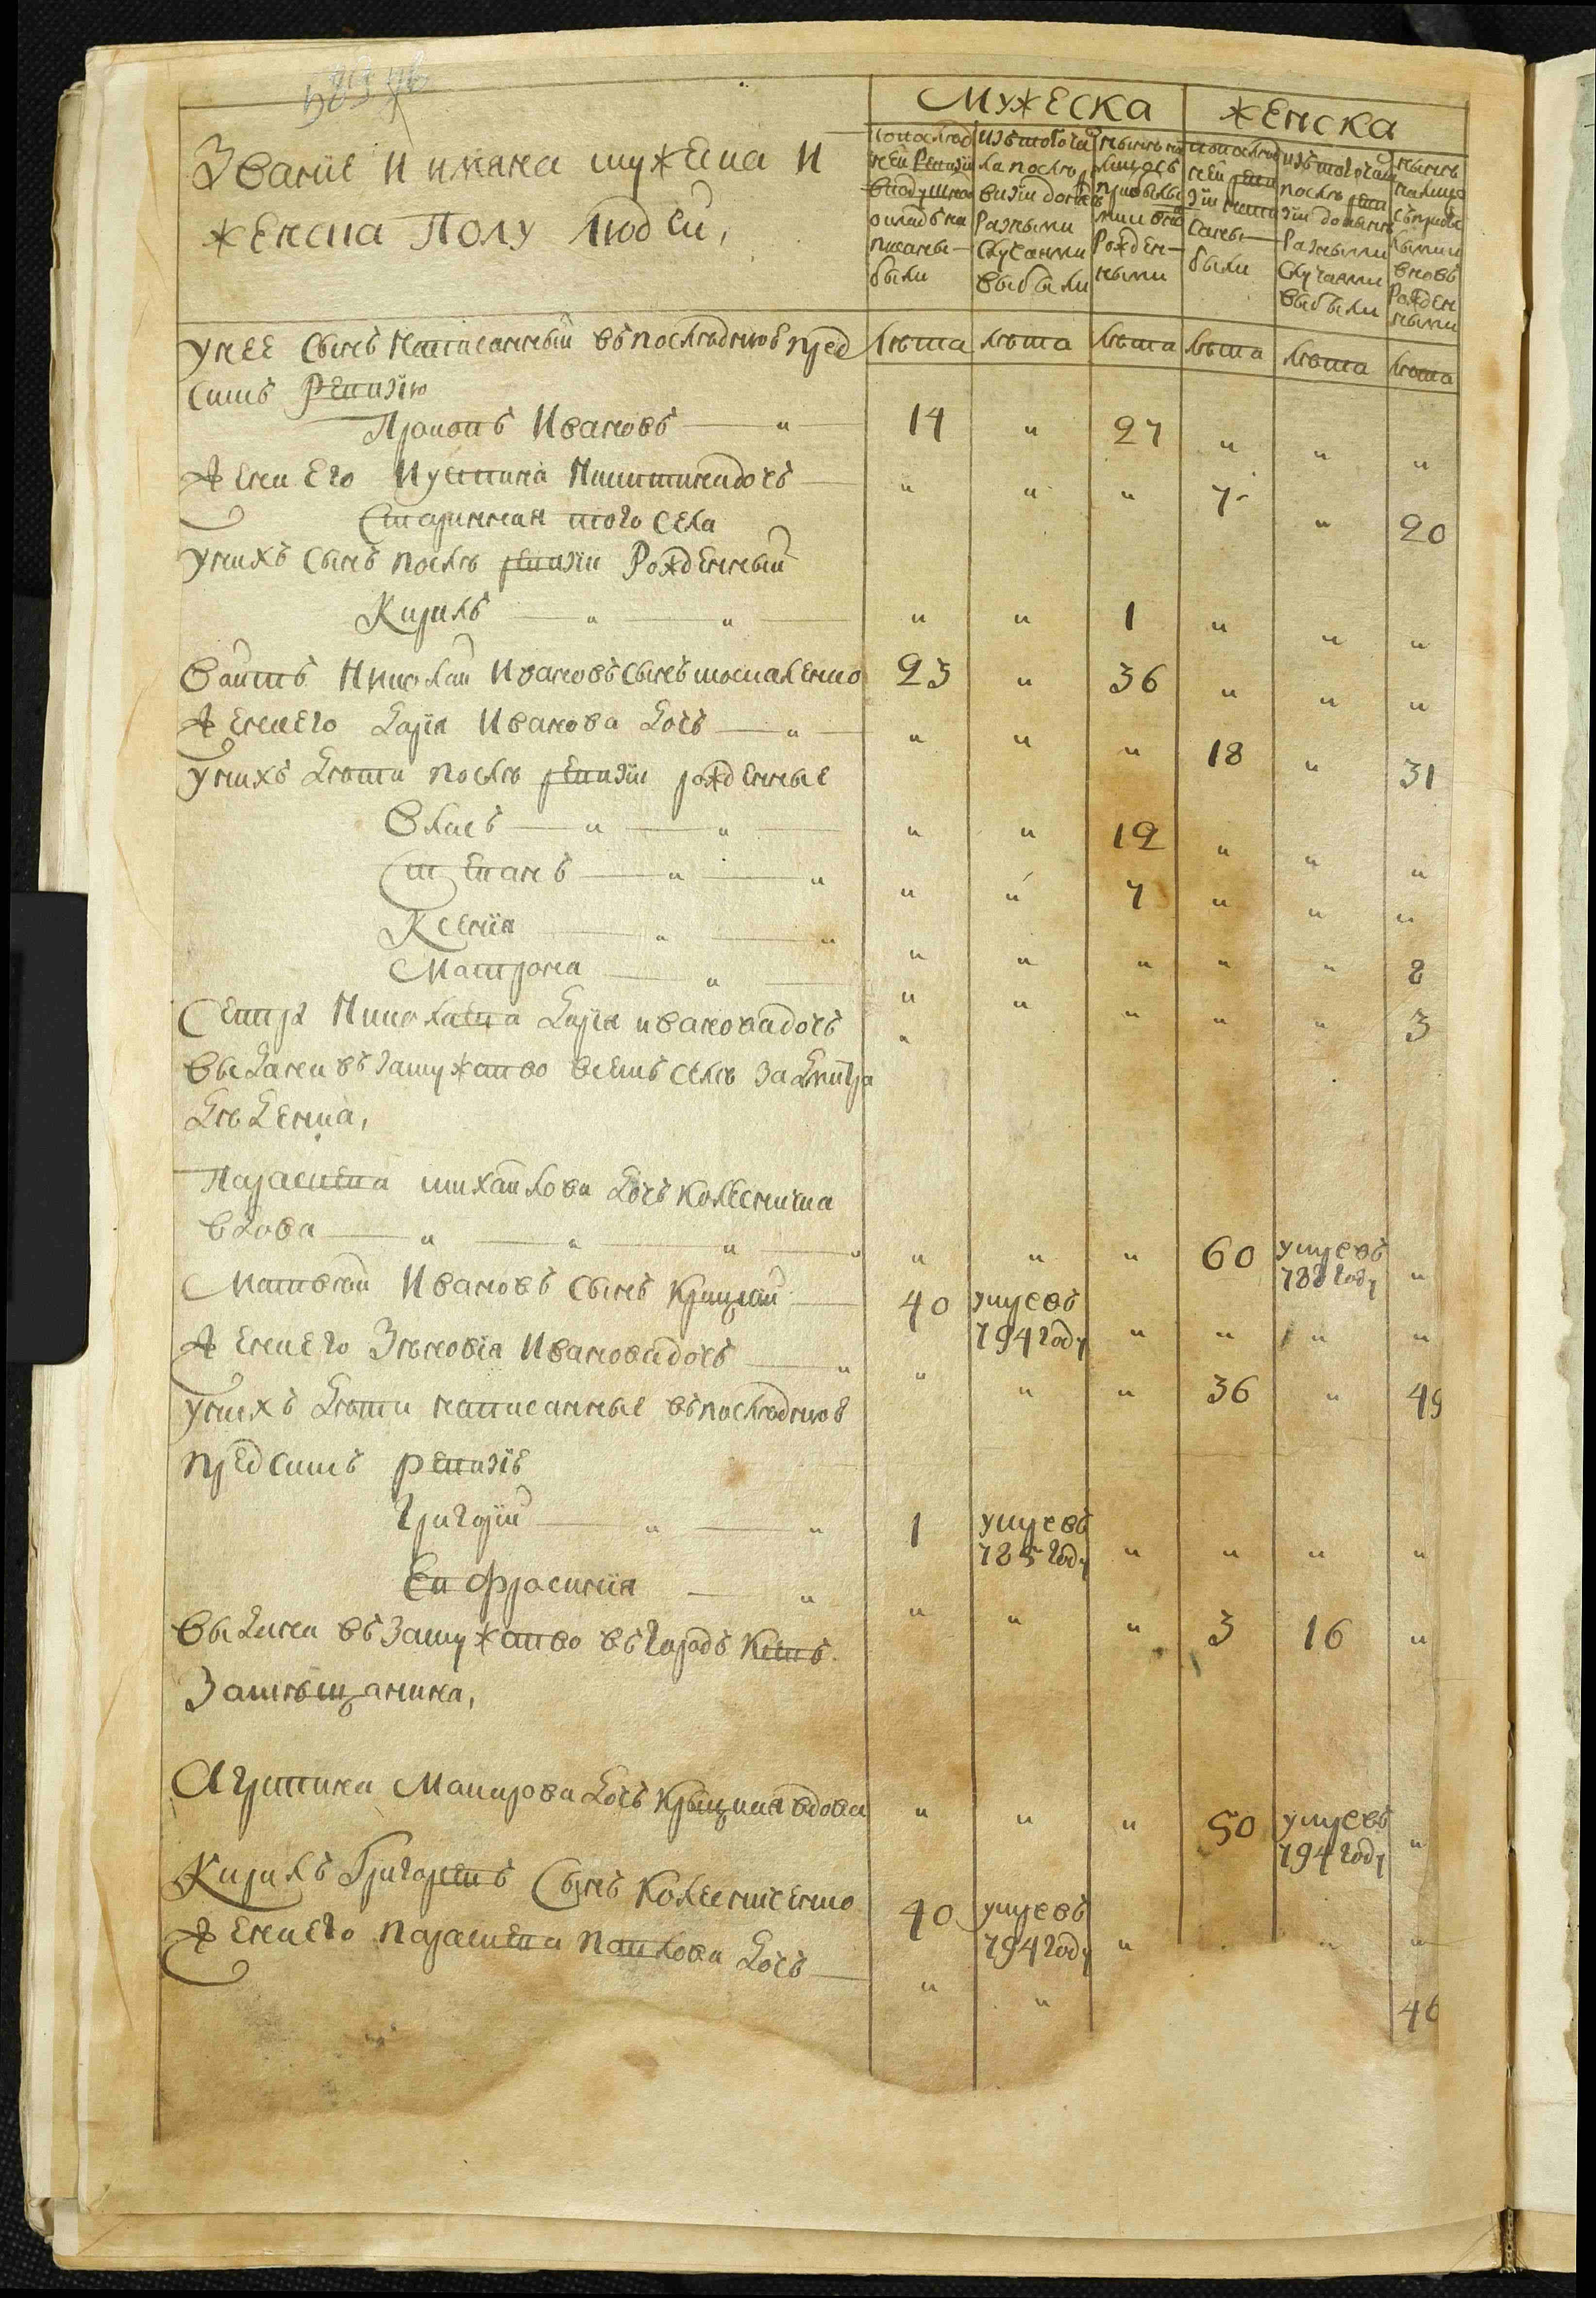 583 ув
Мужеска
Женска
Званїе и имяна мужеска и
женска полу людей,
По последней ревизїи в подушном окладе написаны были
Из того числа после ревизїи до ныне разными случаями выбыли
Ныне на лицо с прибылыми и вновь рожденными
По последней ревизїи написаны были
Из того числа после ревизїи до ныне разными случаями выбыли
Ныне на лицо с прибылыми и вновь рожденными
Лѣта Лѣта Лѣта Лѣта Лѣта Лѣта
У нее сынъ написанный въ последнюю пред
симъ ревизїю
Прокопъ Ивановъ — " 14 " 27 " " "
Жена его Иустина Никитина дочь — " " " 7 " 20
Старинная того села
У нихъ сынъ после ревизїи рожденный
Кирилъ — " — " — " " 1 " " "
Николай Ивановъ сынъ 23 " 36 " " "
Жена его Дарїя Иванова дочь — " — " " " 18 " 31
У нихъ дети после ревизїи рожденные
Власъ — " — " — " " 12 " " "
Степанъ — " — " " " 7 " " "
Ксенїя — " — " " " " " " 8
Матрона — " — " " " " " 3
Сестра Николаева Дарїя Иванова дочь "
выдана въ замужство в емъ селе за Дмитра
Деденка,
Параскева Михайлова дочь Колесничка
вдова — " — " — " — " " " " 60 умре въ 788 году "
Матвей Ивановъ сынъ Крицкий — 40 умре въ 794 году " " " "
Жена его Зѣновїя Иванова дочь — " " " " 36 " 49
У нихъ дети написанные въ последнюю
предсимъ ревизїе
Григорїй — " — " 1 умре въ 785 году " " " "
Евфросинїя — " " " " 3 16 "
выдана въ замужство въ городъ Кїевъ
за мѣщанина,
Агрипина Макарова дочь Крыцкая вдова " " " 50 умре въ 794 году "
Кирилъ Григорьевъ сынъ Колесниченко 40 умре въ 794 году " " "
Жена его Параскева Павлова дочь — " " 46